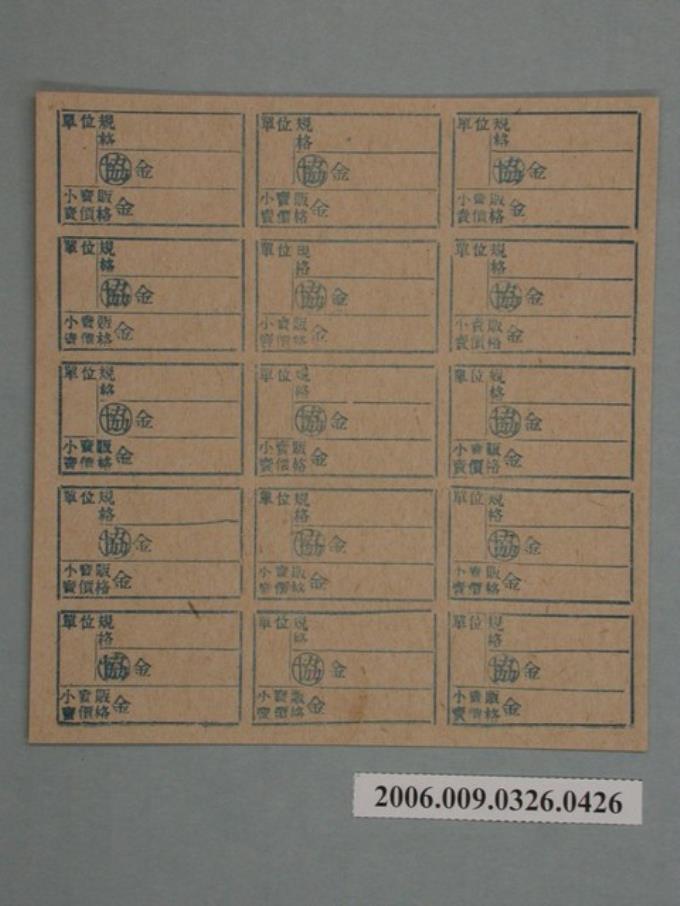 單位規
格
協金
小賣販
賣價格金
單位規
格
協金
小賣販
賣價格金
單位規
格
協金
小賣販
賣價格金
單位規
格
協金
小賣販
賣價格金
單位規
格
協金
小賣販
賣價格金
單位規
格
協金
小賣販
賣價格金
單位規
格
協金
小賣販
賣價格金
單位規
格
協金
小賣販
賣價格金
單位規
格
協金
小賣販
賣價格金
單位規
格
協金
小賣販
賣價格金
單位規
格
協金
小賣販
賣價格金
單位規
格
協金
小賣販
賣價格金
單位規
格
協金
小賣販
賣價格金
單位規
格
協金
小賣販
賣價格金
單位規
格
協金
小賣販
賣價格金
2006.009.0326.0426